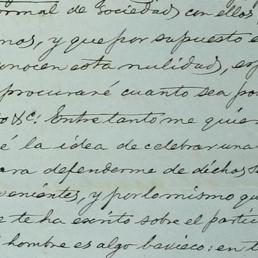 ormal de Sociedad, con ellos
nos, y que por supuesto e
onocen esta nulidad, es
procuraré cuanto sea po
o &c: Entretanto me quier
é la idea de celebrar una
ara defenderme de dichos S
venientes, y por lo mismo qu
e te ha escrito sobre el partic
l hombre es algo bavieco: en t